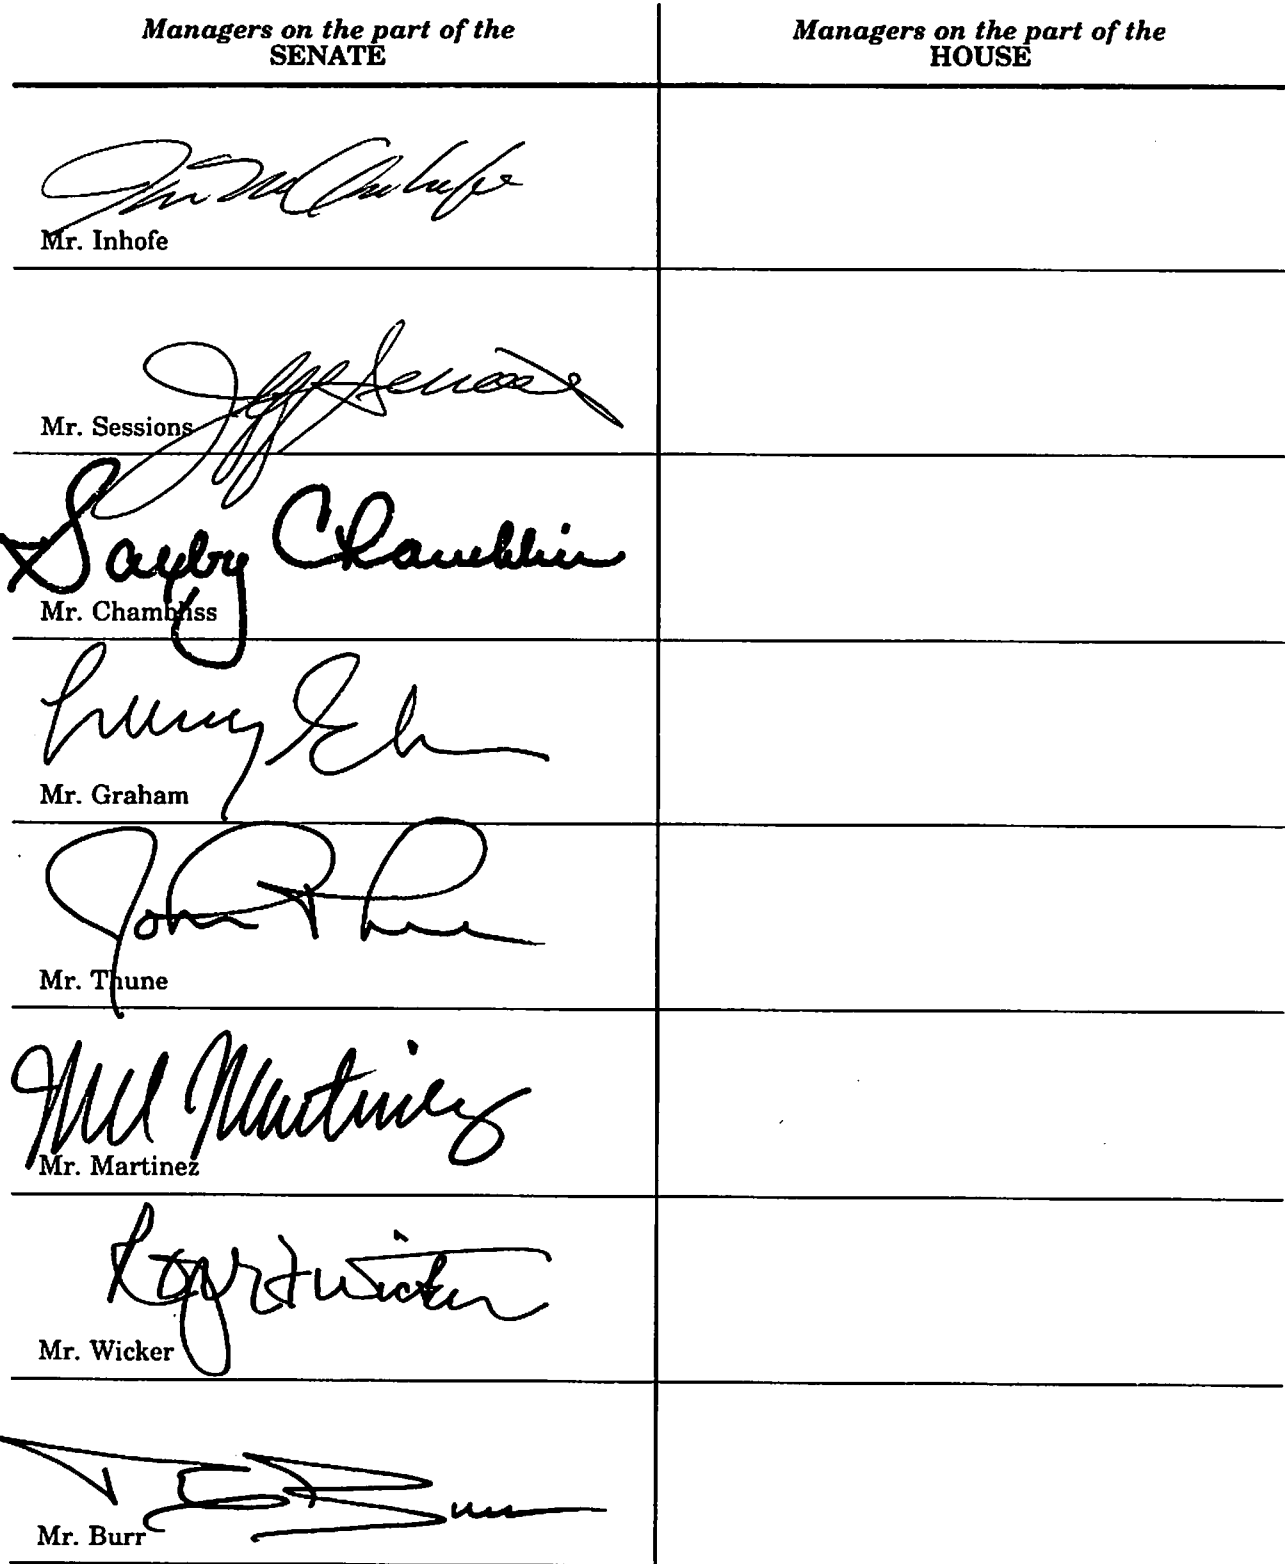 Managers on the part of the
SENATE
Managers on the part of the
HOUSE
Mr. Inhofe
Jeff Sessions
Mr. Sessions
Saxby Chambliss
Mr. Chambliss
Mr. Graham
John Thune
Mr. Thune
Mel Martinez
Mr. Martinez
Roger F Wicker
Mr. Wicker
Mr. Burr